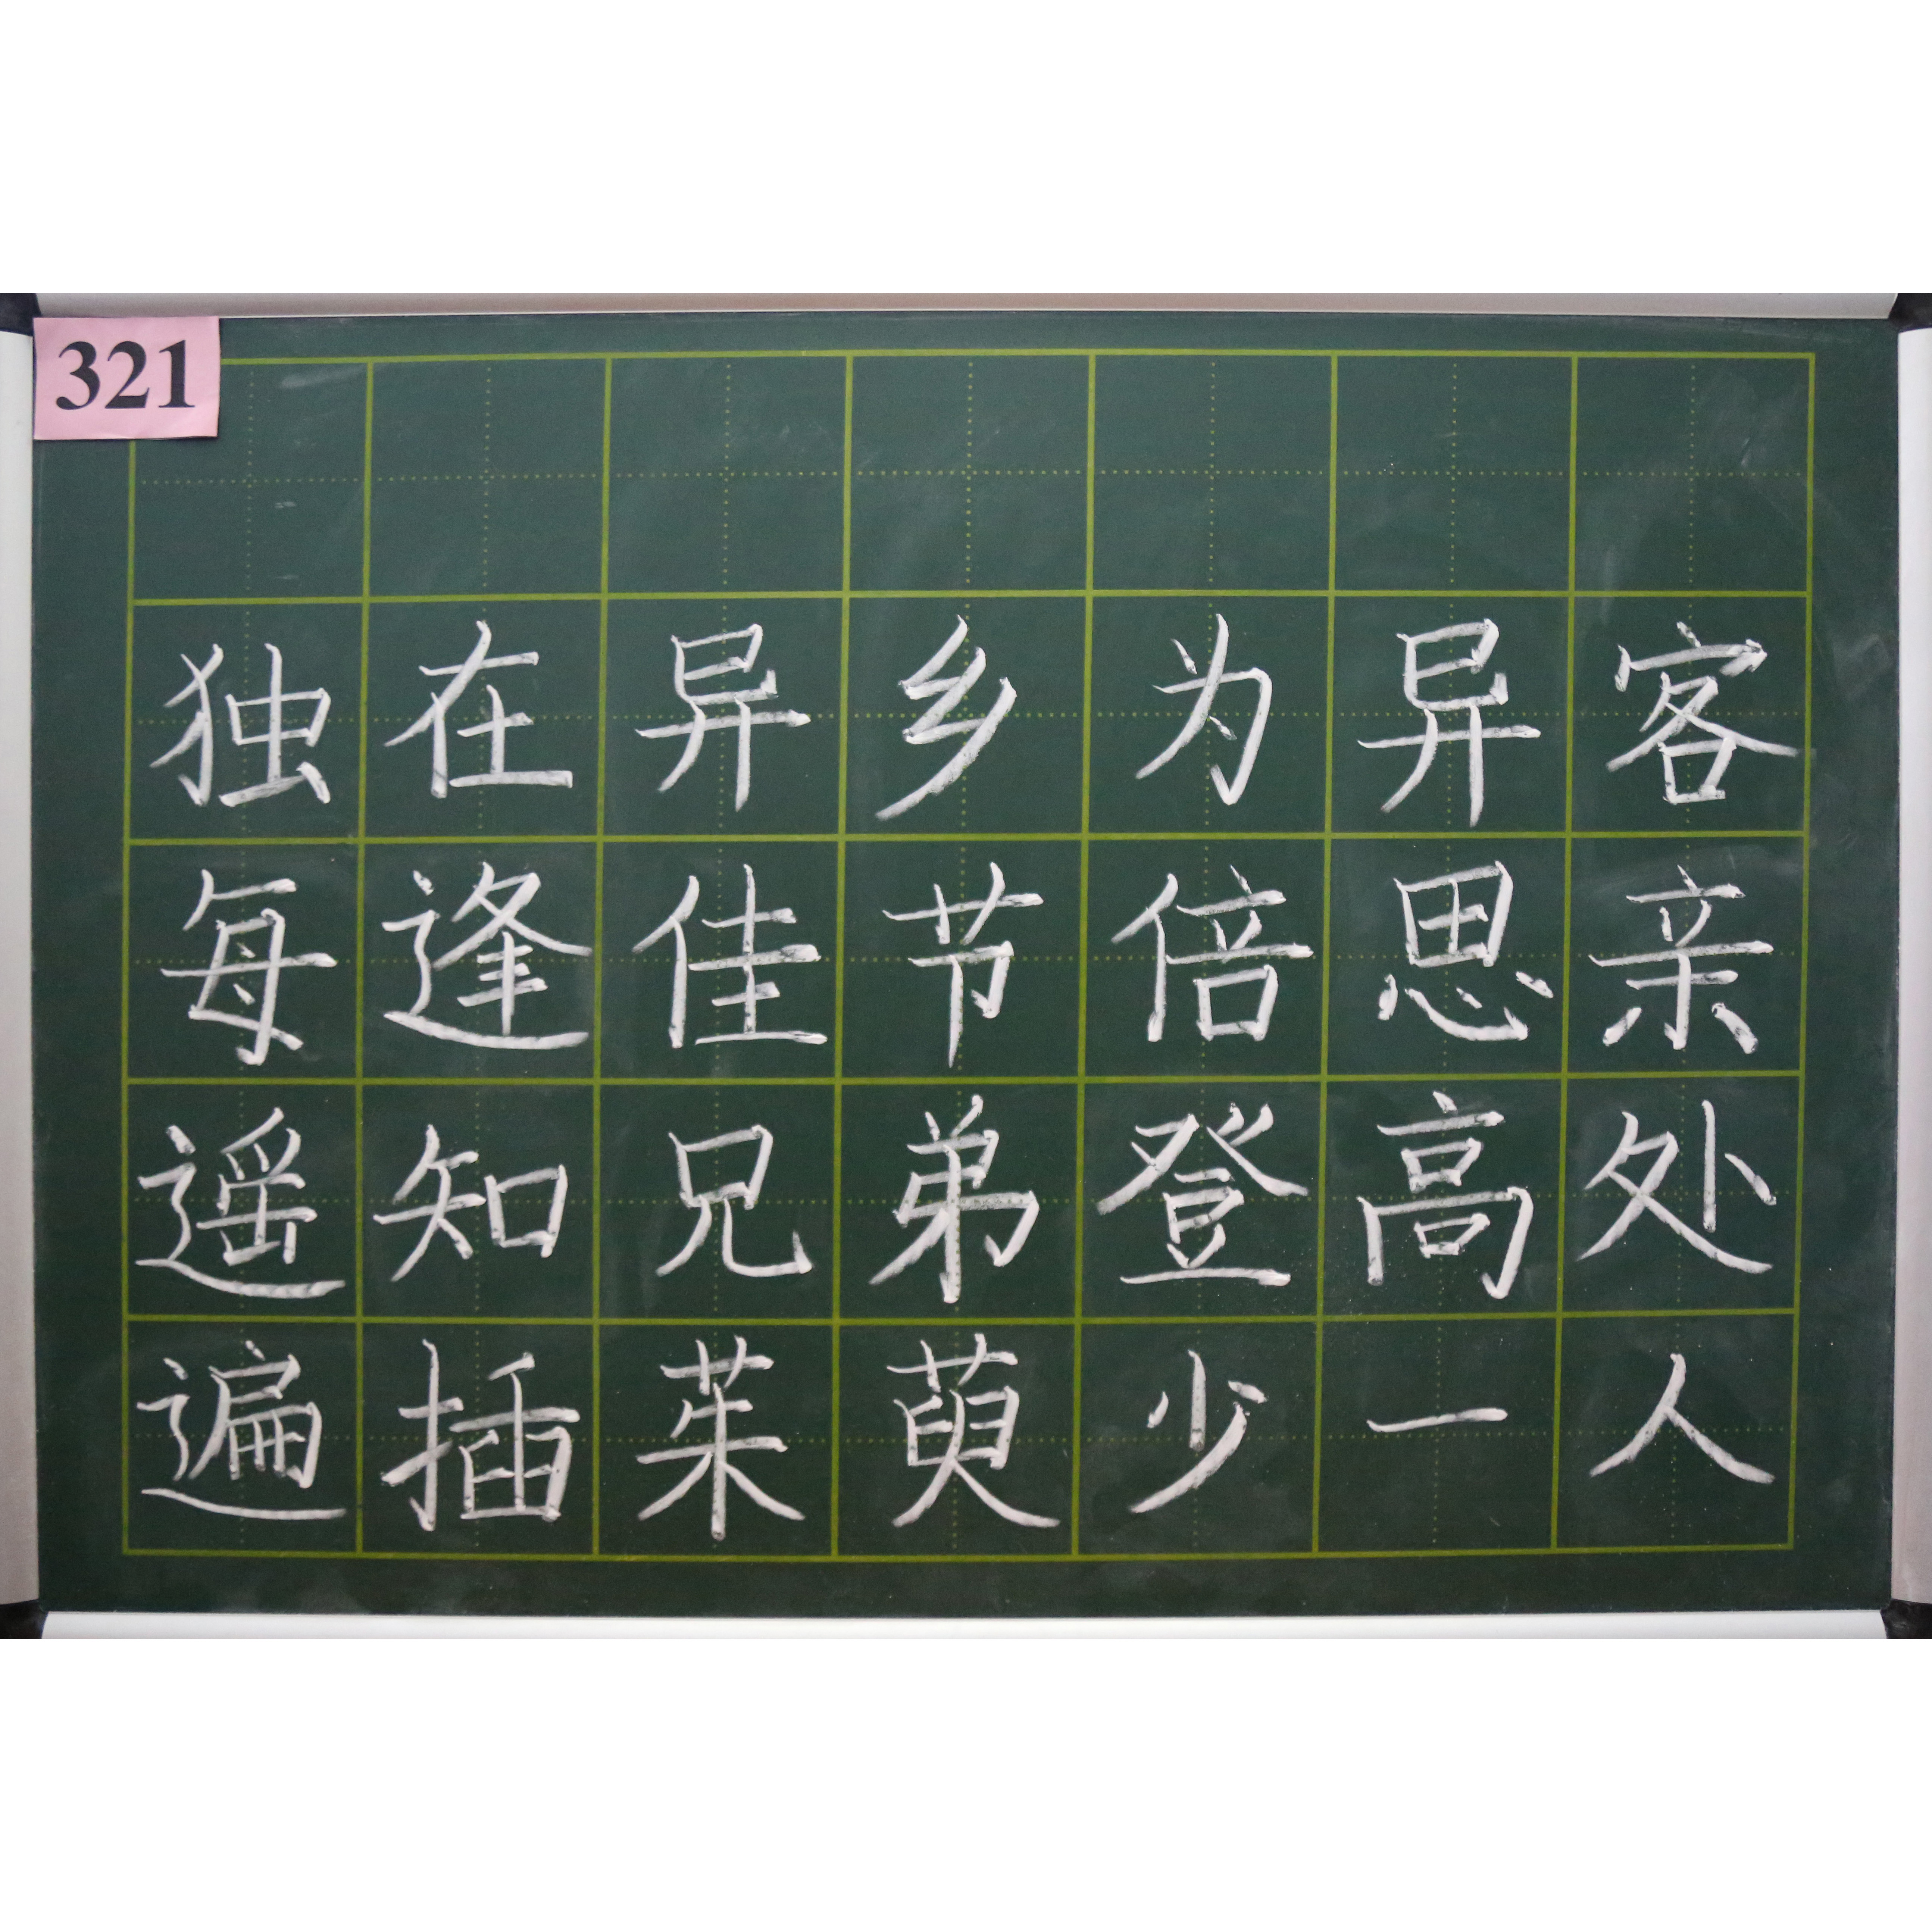 321
独在异乡为异客
每逢佳节倍思亲
遥知兄弟登高处
遍插茱萸少一人